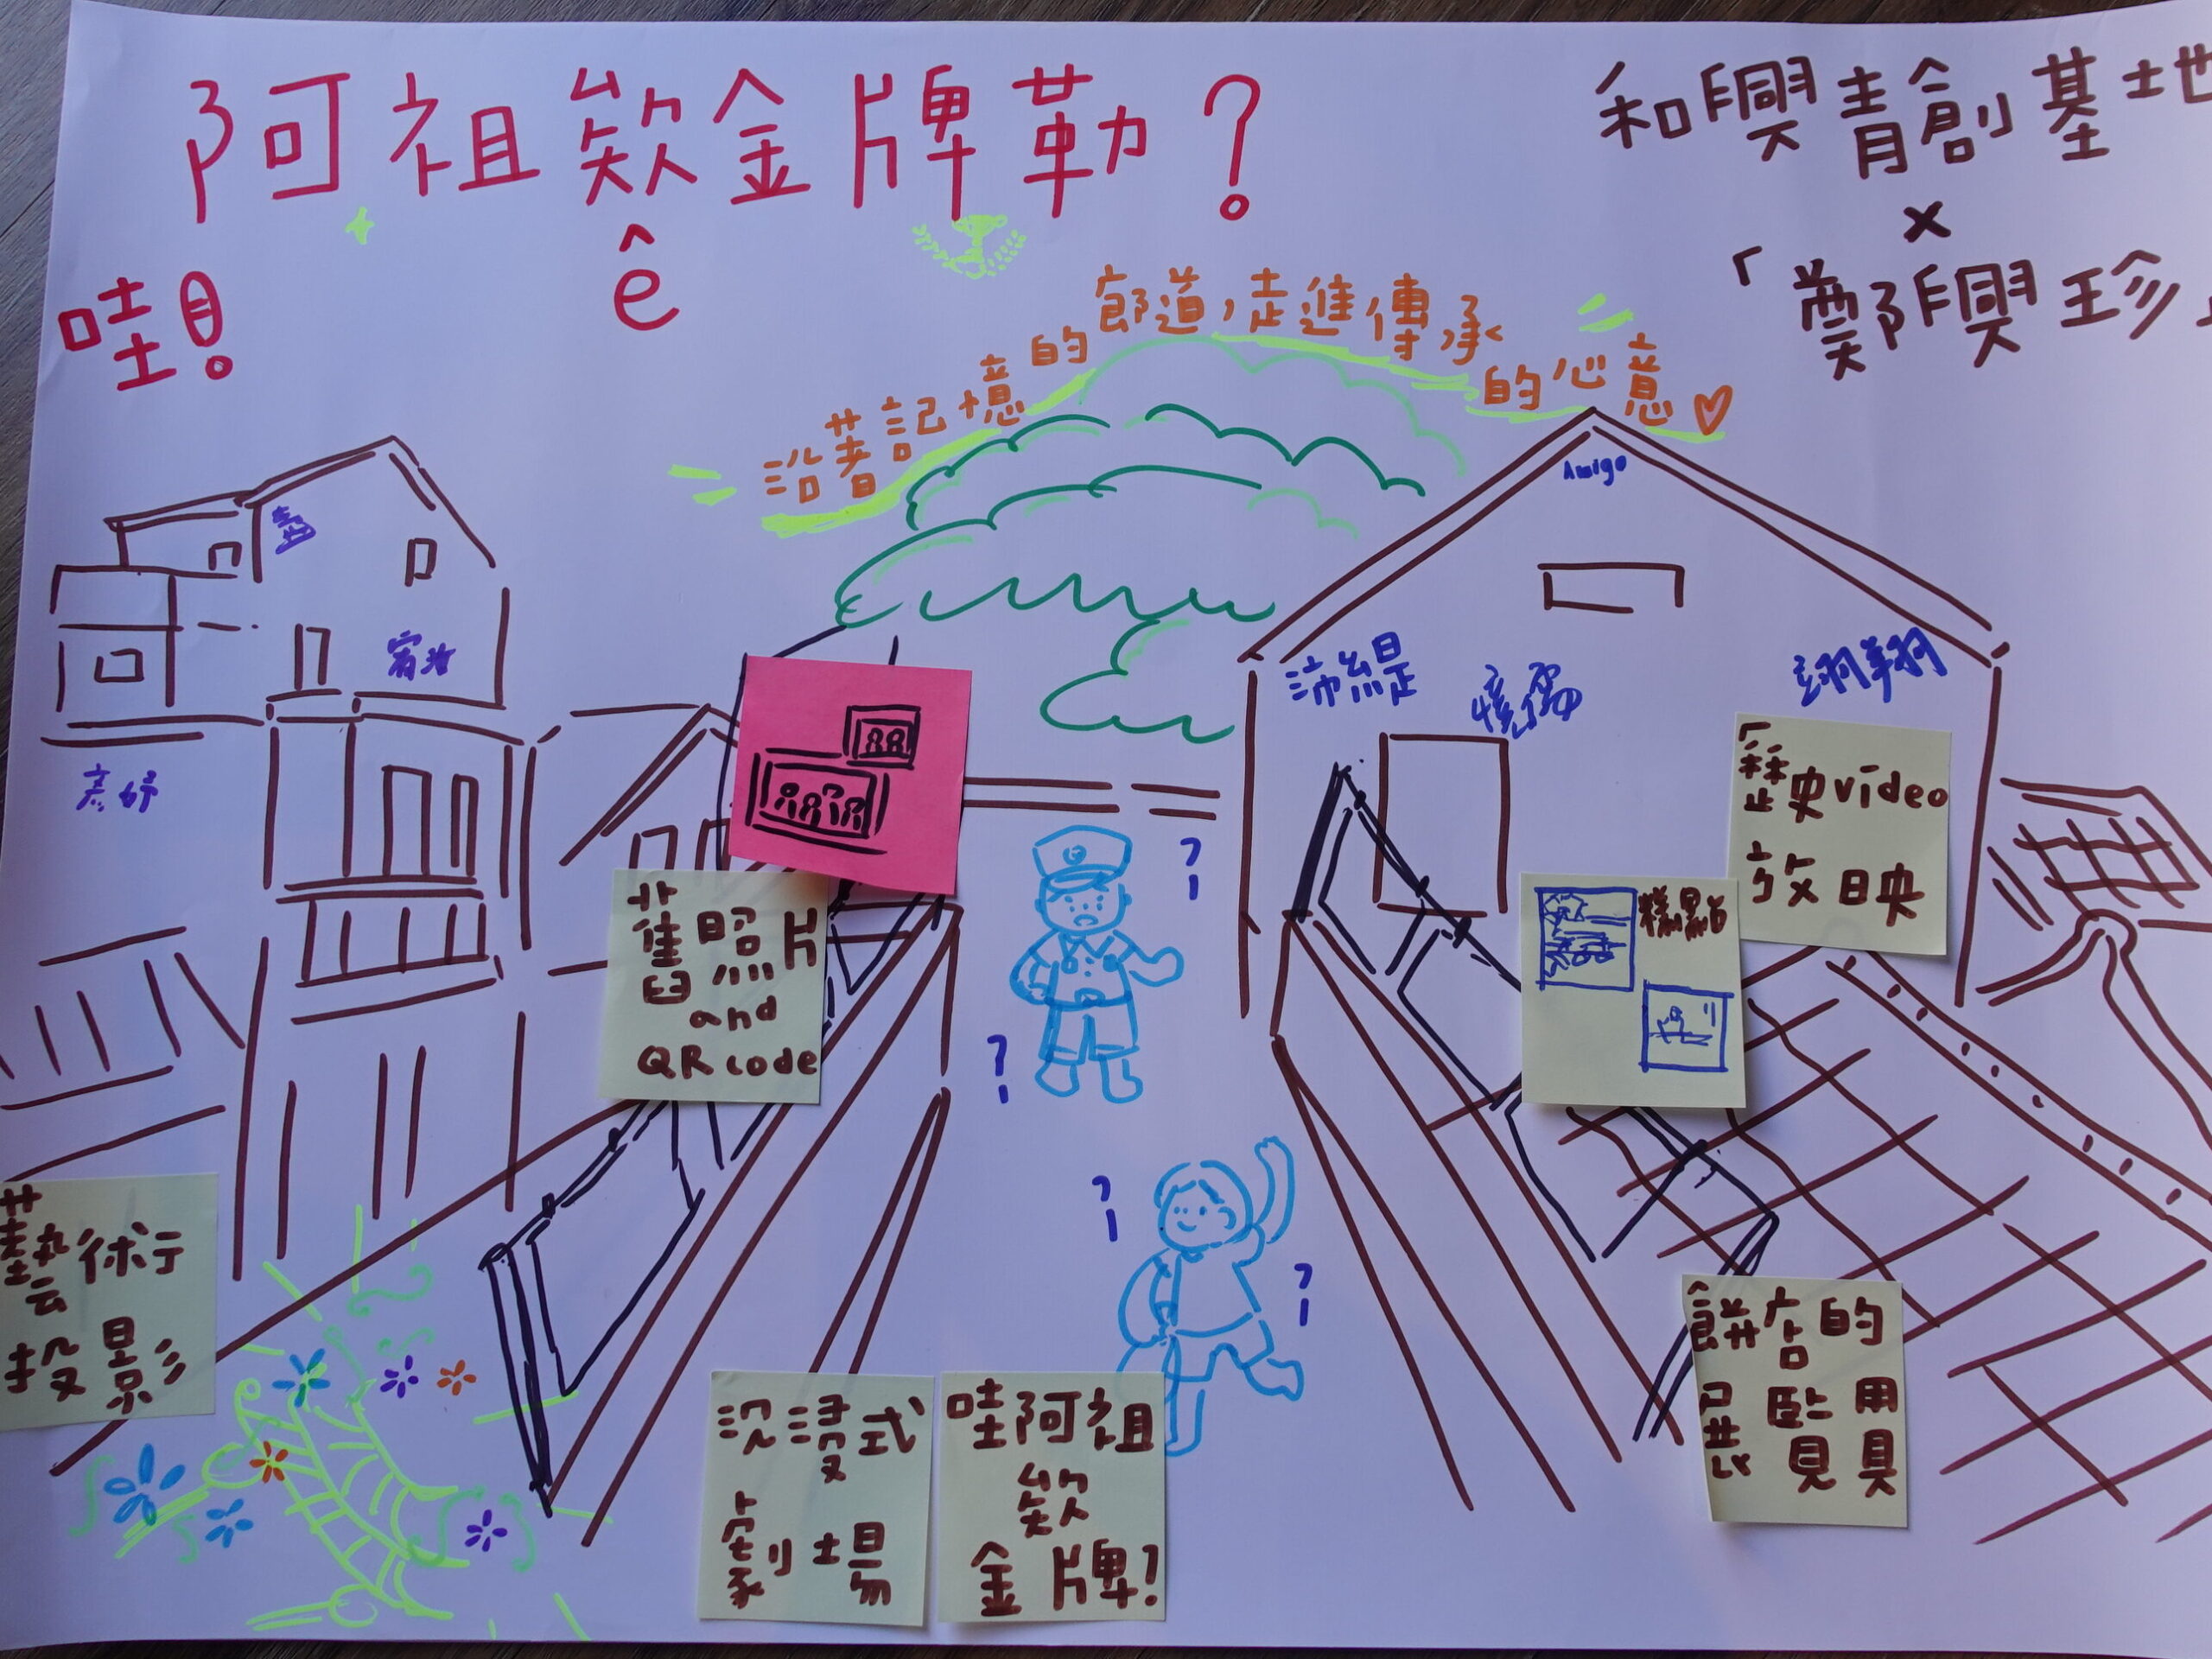 阿祖欸金牌勒?
ê
哇!
和興青創基地
×
「鄭興珍」
沿著記憶的餅道,走進傳承的心意
Amigo
沛緹
翊翔
歷史video
放映
糕點
舊照片
and
QR code
藝術
投影
沉浸式
劇場
哇阿祖
欸
金牌!
餅店的
展覽用具
? ? ? ?